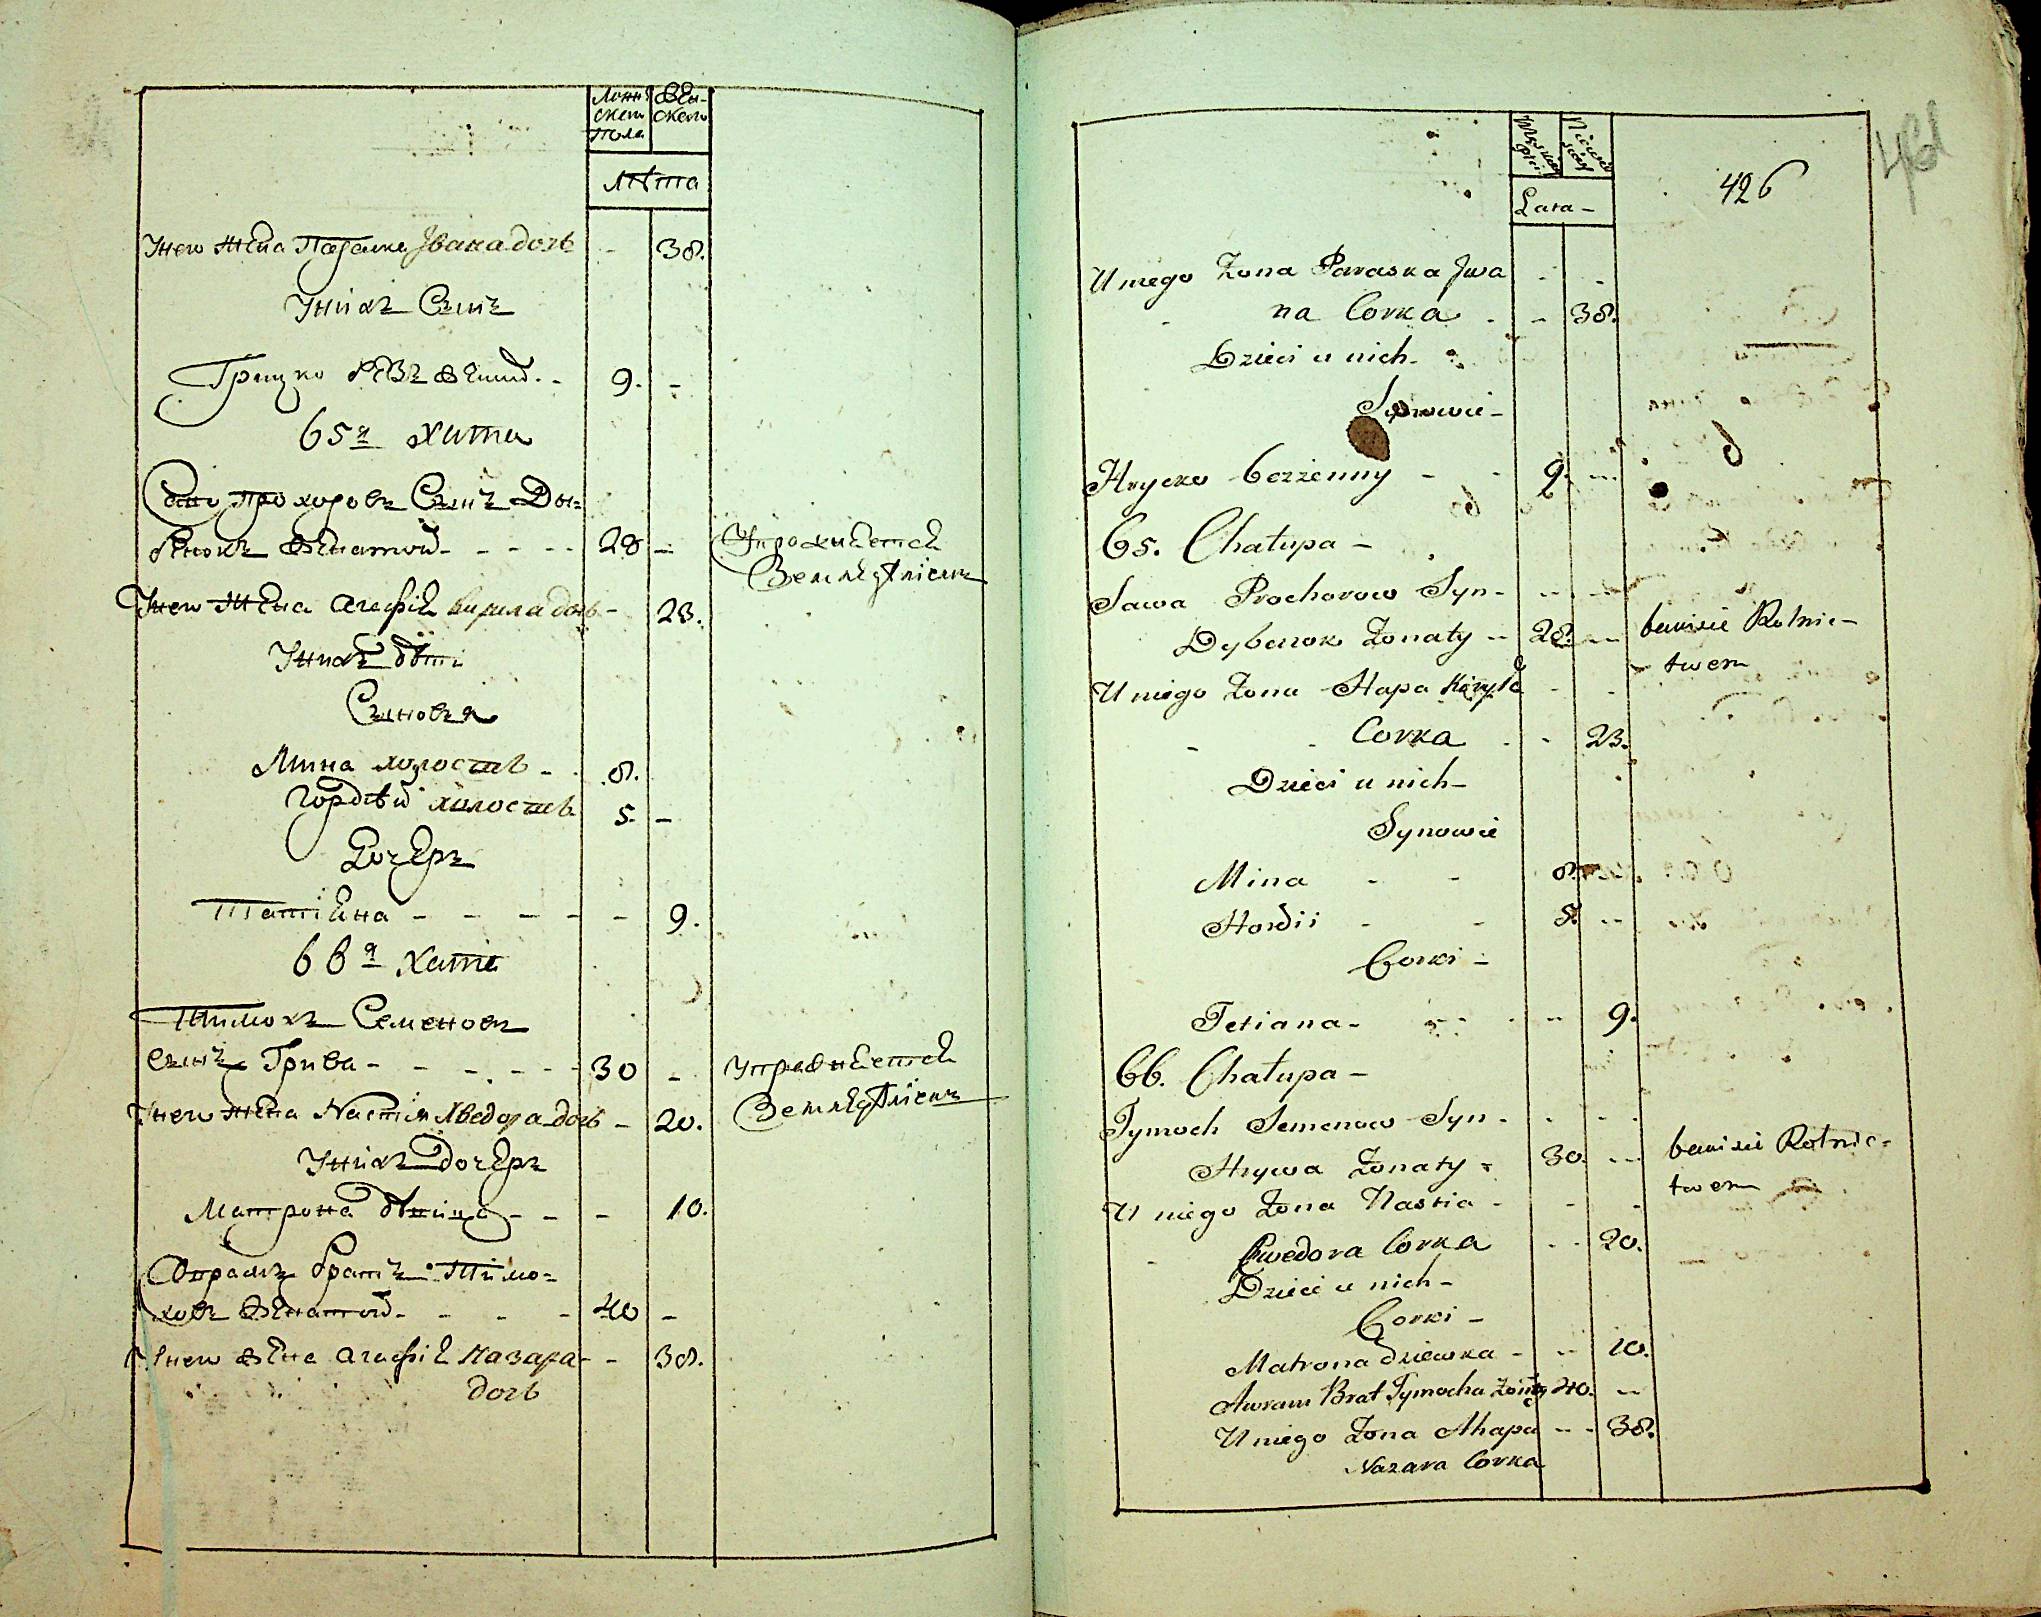 Мужескаго пола
Женскаго
лѣта
Унего Жена Параска Јвана дочь - 38.
Унихъ Сынъ
Грицко безъ женъ. - 9. -
65я хата
Сава прохоровъ Сынъ Ды=
бенокъ женатой - - - - 28 - Упражняется
Земледѣліемъ
Унего Жена агафія кирила дочь - 23.
Унихъ дѣти
Сыновья
Мина холостъ - 8.
Гордѣй холостъ 5 -
Дочеръ
Татіяна - - - - - 9.
66я хата
Тимохъ Семеновъ
Сынъ Грива - - - - - 30 - упражняется
Унего жена Настія Хведора дочь - 20. Земледѣліемъ
Унихъ дочеръ
Матрона дѣвица - - - 10.
Авраамъ братъ Тимо=
ховъ женатой - - - - 40 -
Унего жена агафія назара - - 38.
дочь
461
426
Męskiey płci
Niewieściey
Lata -
U niego Żona Paraska Jwa
na Corka - - 38.
Dzieci u nich -
Synowie -
Hrycko bezżenny - - 9. -
65. Chałupa -
Sawa Prochorow Syn -
Dybenok Żonaty - 28. - bawisie Rolnic -
- twem
U niego Żona Hapa Kiryla
Corka - - 23.
Dzieci u nich -
Synowie
Mina - - 8.
Hordii - - 5. -
Corki -
Tetiana - - - - 9.
66. Chałupa -
Tymoch Semenow Syn -
Hrywa Żonaty - 30. - bawisie Rolnic -
twem
U niego Żona Nastia -
Chwedora Corka - - 20.
Dzieci u nich -
Corki -
Matrona dziewka - - 10.
Awram Brat Tymocha Żonaty 40. -
U niego Żona Ahapa - - 38.
Nazara Corka